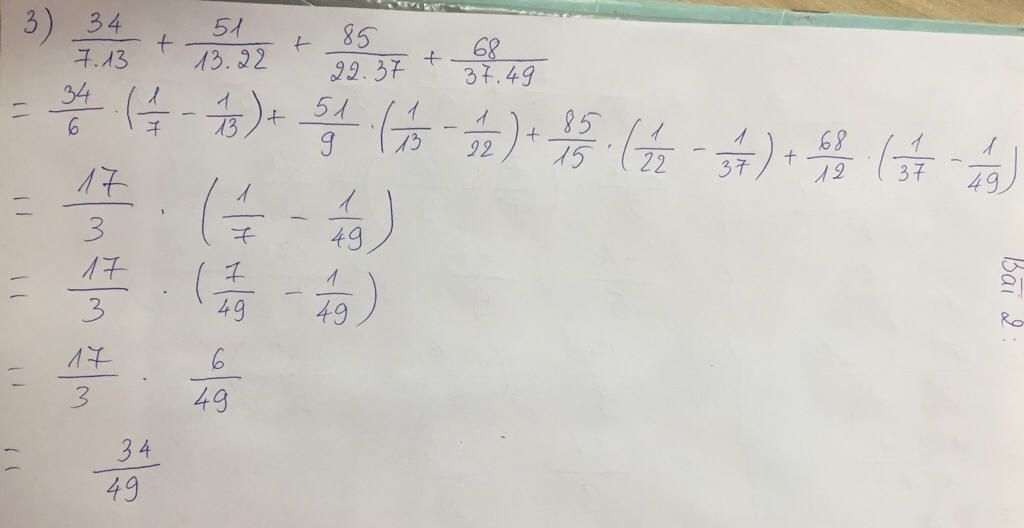 3) 34/7.13 + 51/13.22 + 85/22.37 + 68/37.49
= 34/6 . (1/7 - 1/13) + 51/9 . (1/13 - 1/22) + 85/15 . (1/22 - 1/37) + 68/12 . (1/37 - 1/49)
= 17/3 . (1/7 - 1/49)
= 17/3 . (7/49 - 1/49)
= 17/3 . 6/49
= 34/49
Bài 2: